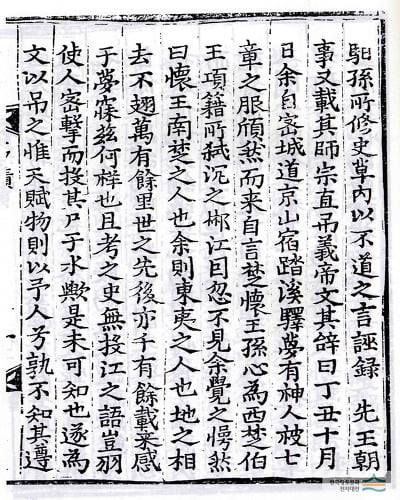 馹孫所修史草內以不道之言誣録 先王朝
事又載其師宗直吊義帝文其辭曰丁丑十月
日余自密城道京山宿踏溪驛夢有神人被七
章之服頎然而来自言楚懷王孫心為西楚伯
王項籍所弑沉之郴江因忽不見余覺之愕然
曰懷王南楚之人也余則東夷之人也地之相
去不翅萬有餘里世之先後亦千有餘載来感
于夢寐玆何祥也且考之史無投江之語豈羽
使人密擊而投其尸于水歟是未可知也遂為
文以吊之惟天賦物則以予人兮孰不知其遵
한국향토문화
전자대전